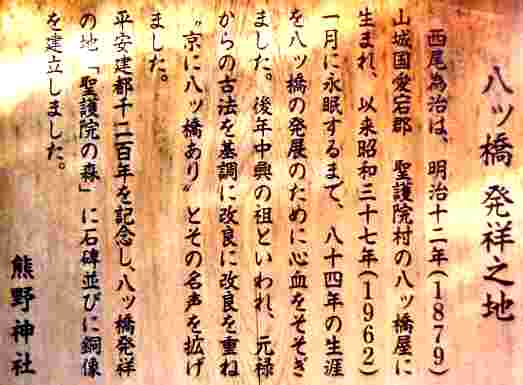 八ッ橋 発祥之地
西尾為治は、明治十二年(1879)
山城国愛宕郡 聖護院村の八ッ橋屋に
生まれ、以来昭和三十七年(1962)
一月に永眠するまで、八十四年の生涯
を八ッ橋の発展のために心血をそそぎ
ました。後年中興の祖といわれ、元禄
からの古法を基調に改良に改良を重ね
〝京に八ッ橋あり〟とその名声を拡げ
ました。
平安建都千二百年を記念し、八ッ橋発祥
の地「聖護院の森」に石碑並びに銅像
を建立しました。
熊野神社